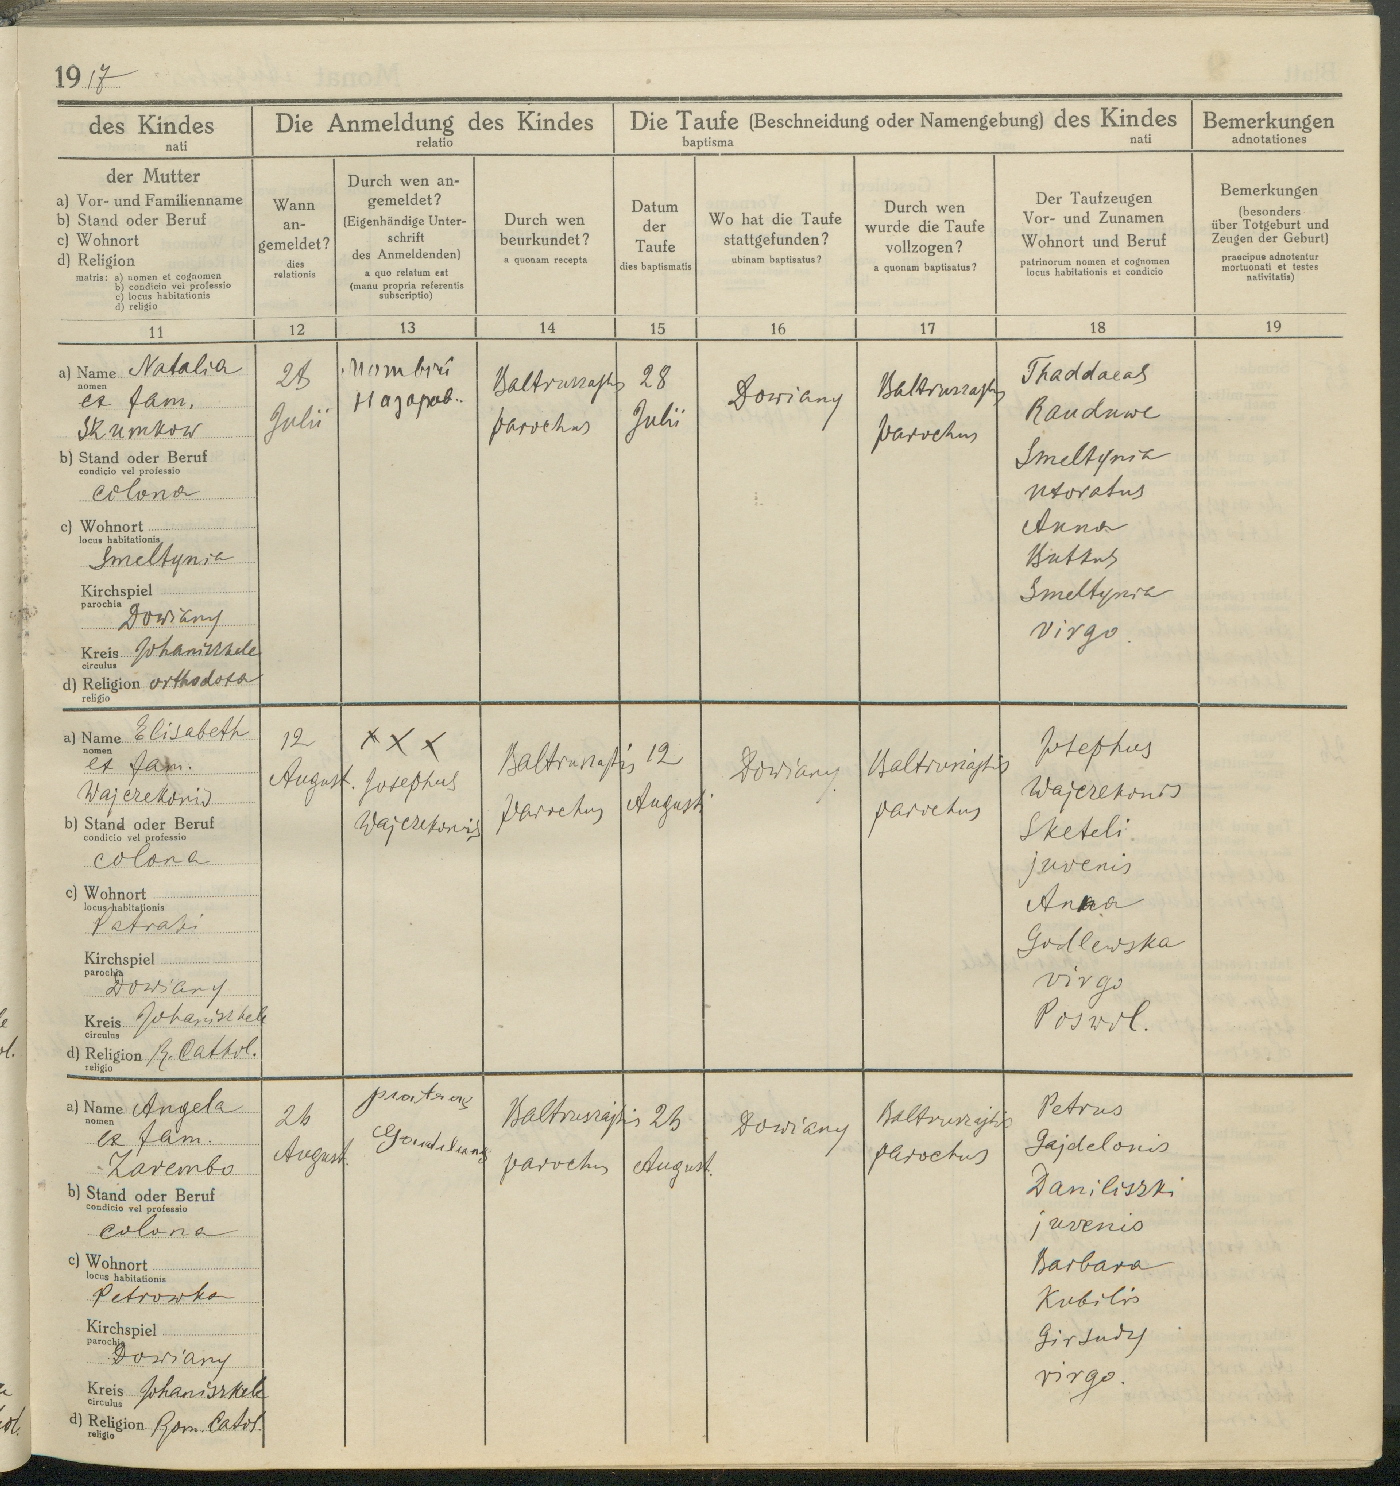 1917
des Kindes
nati
Die Anmeldung des Kindes
relatio
Die Taufe (Beschneidung oder Namengebung) des Kindes
baptisma nati
Bemerkungen
adnotationes
der Mutter
a) Vor- und Familienname
b) Stand oder Beruf
c) Wohnort
d) Religion
matris: a) nomen et cognomen
b) condicio vel professio
c) locus habitationis
d) religio
Wann
an-
gemeldet?
dies
relationis
Durch wen an-
gemeldet?
(Eigenhändige Unter-
schrift
des Anmeldenden)
a quo relatum est
(manu propria referentis
subscriptio)
Durch wen
beurkundet?
a quonam recepta
Datum
der
Taufe
dies baptismatis
Wo hat die Taufe
stattgefunden?
ubinam baptisatus?
Durch wen
wurde die Taufe
vollzogen?
a quonam baptisatus?
Der Taufzeugen
Vor- und Zunamen
Wohnort und Beruf
patrinorum nomen et cognomen
locus habitationis et condicio
Bemerkungen
(besonders
über Totgeburt und
Zeugen der Geburt)
praecipue adnotentur
mortuonati et testes
nativitatis)
11 12 13 14 15 16 17 18 19
a) Name Natalia
nomen
ex fam.
Skumkow
b) Stand oder Beruf
condicio vel professio
colona
c) Wohnort
locus habitationis
Smeltynia
Kirchspiel
parochia
Dowiany
Kreis Johaniszkele
circulus
d) Religion orthodoxa
religio
28
Julii
Baltruszajtis
parochus
28
Julii
Dowiany
Baltruszajtis
parochus
Thaddaeus
Rauduwe
Smeltynia
uxoratus
Anna
Buttus
Smeltynia
virgo.
a) Name Elisabeth
nomen
ex fam.
Wajczekonis
b) Stand oder Beruf
condicio vel professio
colona
c) Wohnort
locus habitationis
Kirchspiel
parochia
Dowiany
Kreis Johaniszkele
circulus
d) Religion R. Cathol.
religio
12
August.
x x x
Josephus
Wajczekonis
Baltruszajtis
parochus
12
Augusti
Dowiany
Baltruszajtis
parochus
Josephus
Wajczekonis
Sketeli
juvenis
Anna
Godlewska
virgo
Poswol.
a) Name Angela
nomen
ex fam.
Zarembo
b) Stand oder Beruf
condicio vel professio
colona
c) Wohnort
locus habitationis
Petrowka
Kirchspiel
parochia
Dowiany
Kreis Johaniszkele
circulus
d) Religion Rom. Catol.
religio
26
August.
Baltruszajtis
parochus
26
August.
Dowiany
Baltruszajtis
parochus
Petrus
Gajdelonis
Daniliszki
juvenis
Barbara
Kubilis
Girsudy
virgo.